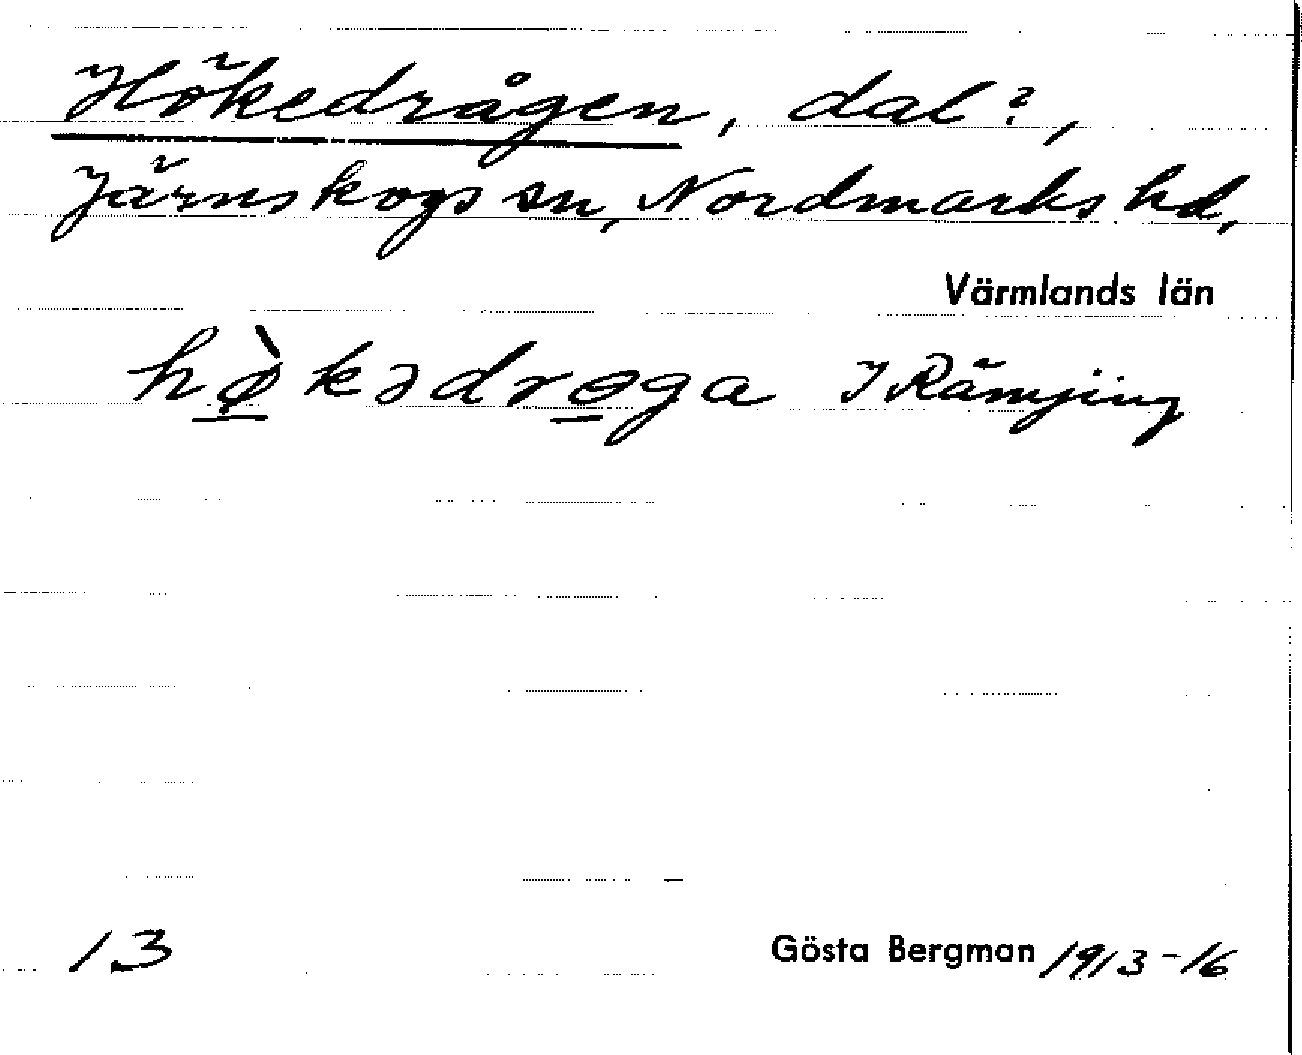 Hökedrågen, dal?,
Järnskogs sn, Nordmarks hd,
Värmlands län
hø̀kədroga I Rämjing
13
Gösta Bergman 1913-16